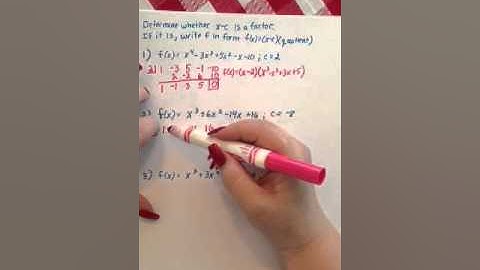 Determine whether x-c is a factor.
If it is, write f in form f(x)=(x-c)(quotient)
1) f(x) = x⁴-3x³+5x²-x-10 ; c=2
2| 1 -3 5 -1 -10
2 -2 6 10
1 -1 3 5 0
f(x)=(x-2)(x³-x²+3x+5)
2) f(x) = x³+6x²-14x+16 ; c=-8
1
3) f(x) = x³+3x